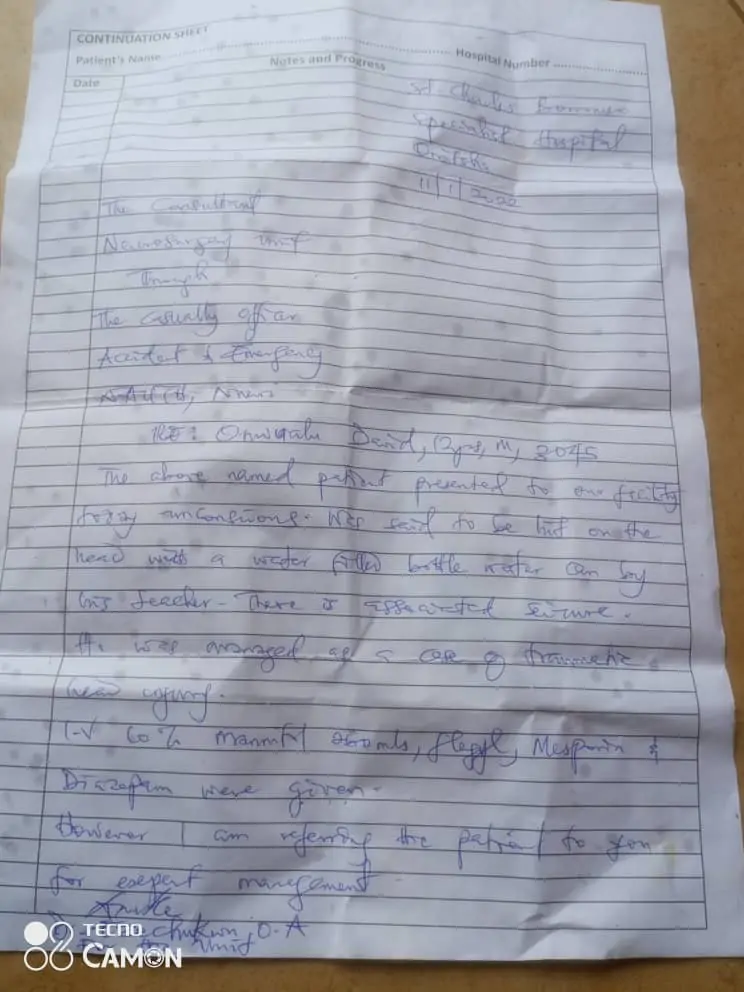 CONTINUATION SHEET
Patient's Name ........ Hospital Number ........
Date Notes and Progress
St. Charles Borromeo
Specialist Hospital
Onitsha
11/1/2022
The Consultant
Neurosurgery Unit
Through
The Casualty officer
Accident & Emergency
NAUTH, Nnewi
RE: David, 12yrs, M,
The above named patient presented to our facility
unconscious. Was said to be hit on the
head with a water filled bottle water can by
his teacher. There is associated seizure.
He was managed as a case of traumatic
head injury.
I.V mannitol Flagyl, Mesporin &
Diazepam were given.
However I am referring the patient to you
for expert management
O. A
Unit
TECNO
CAMON